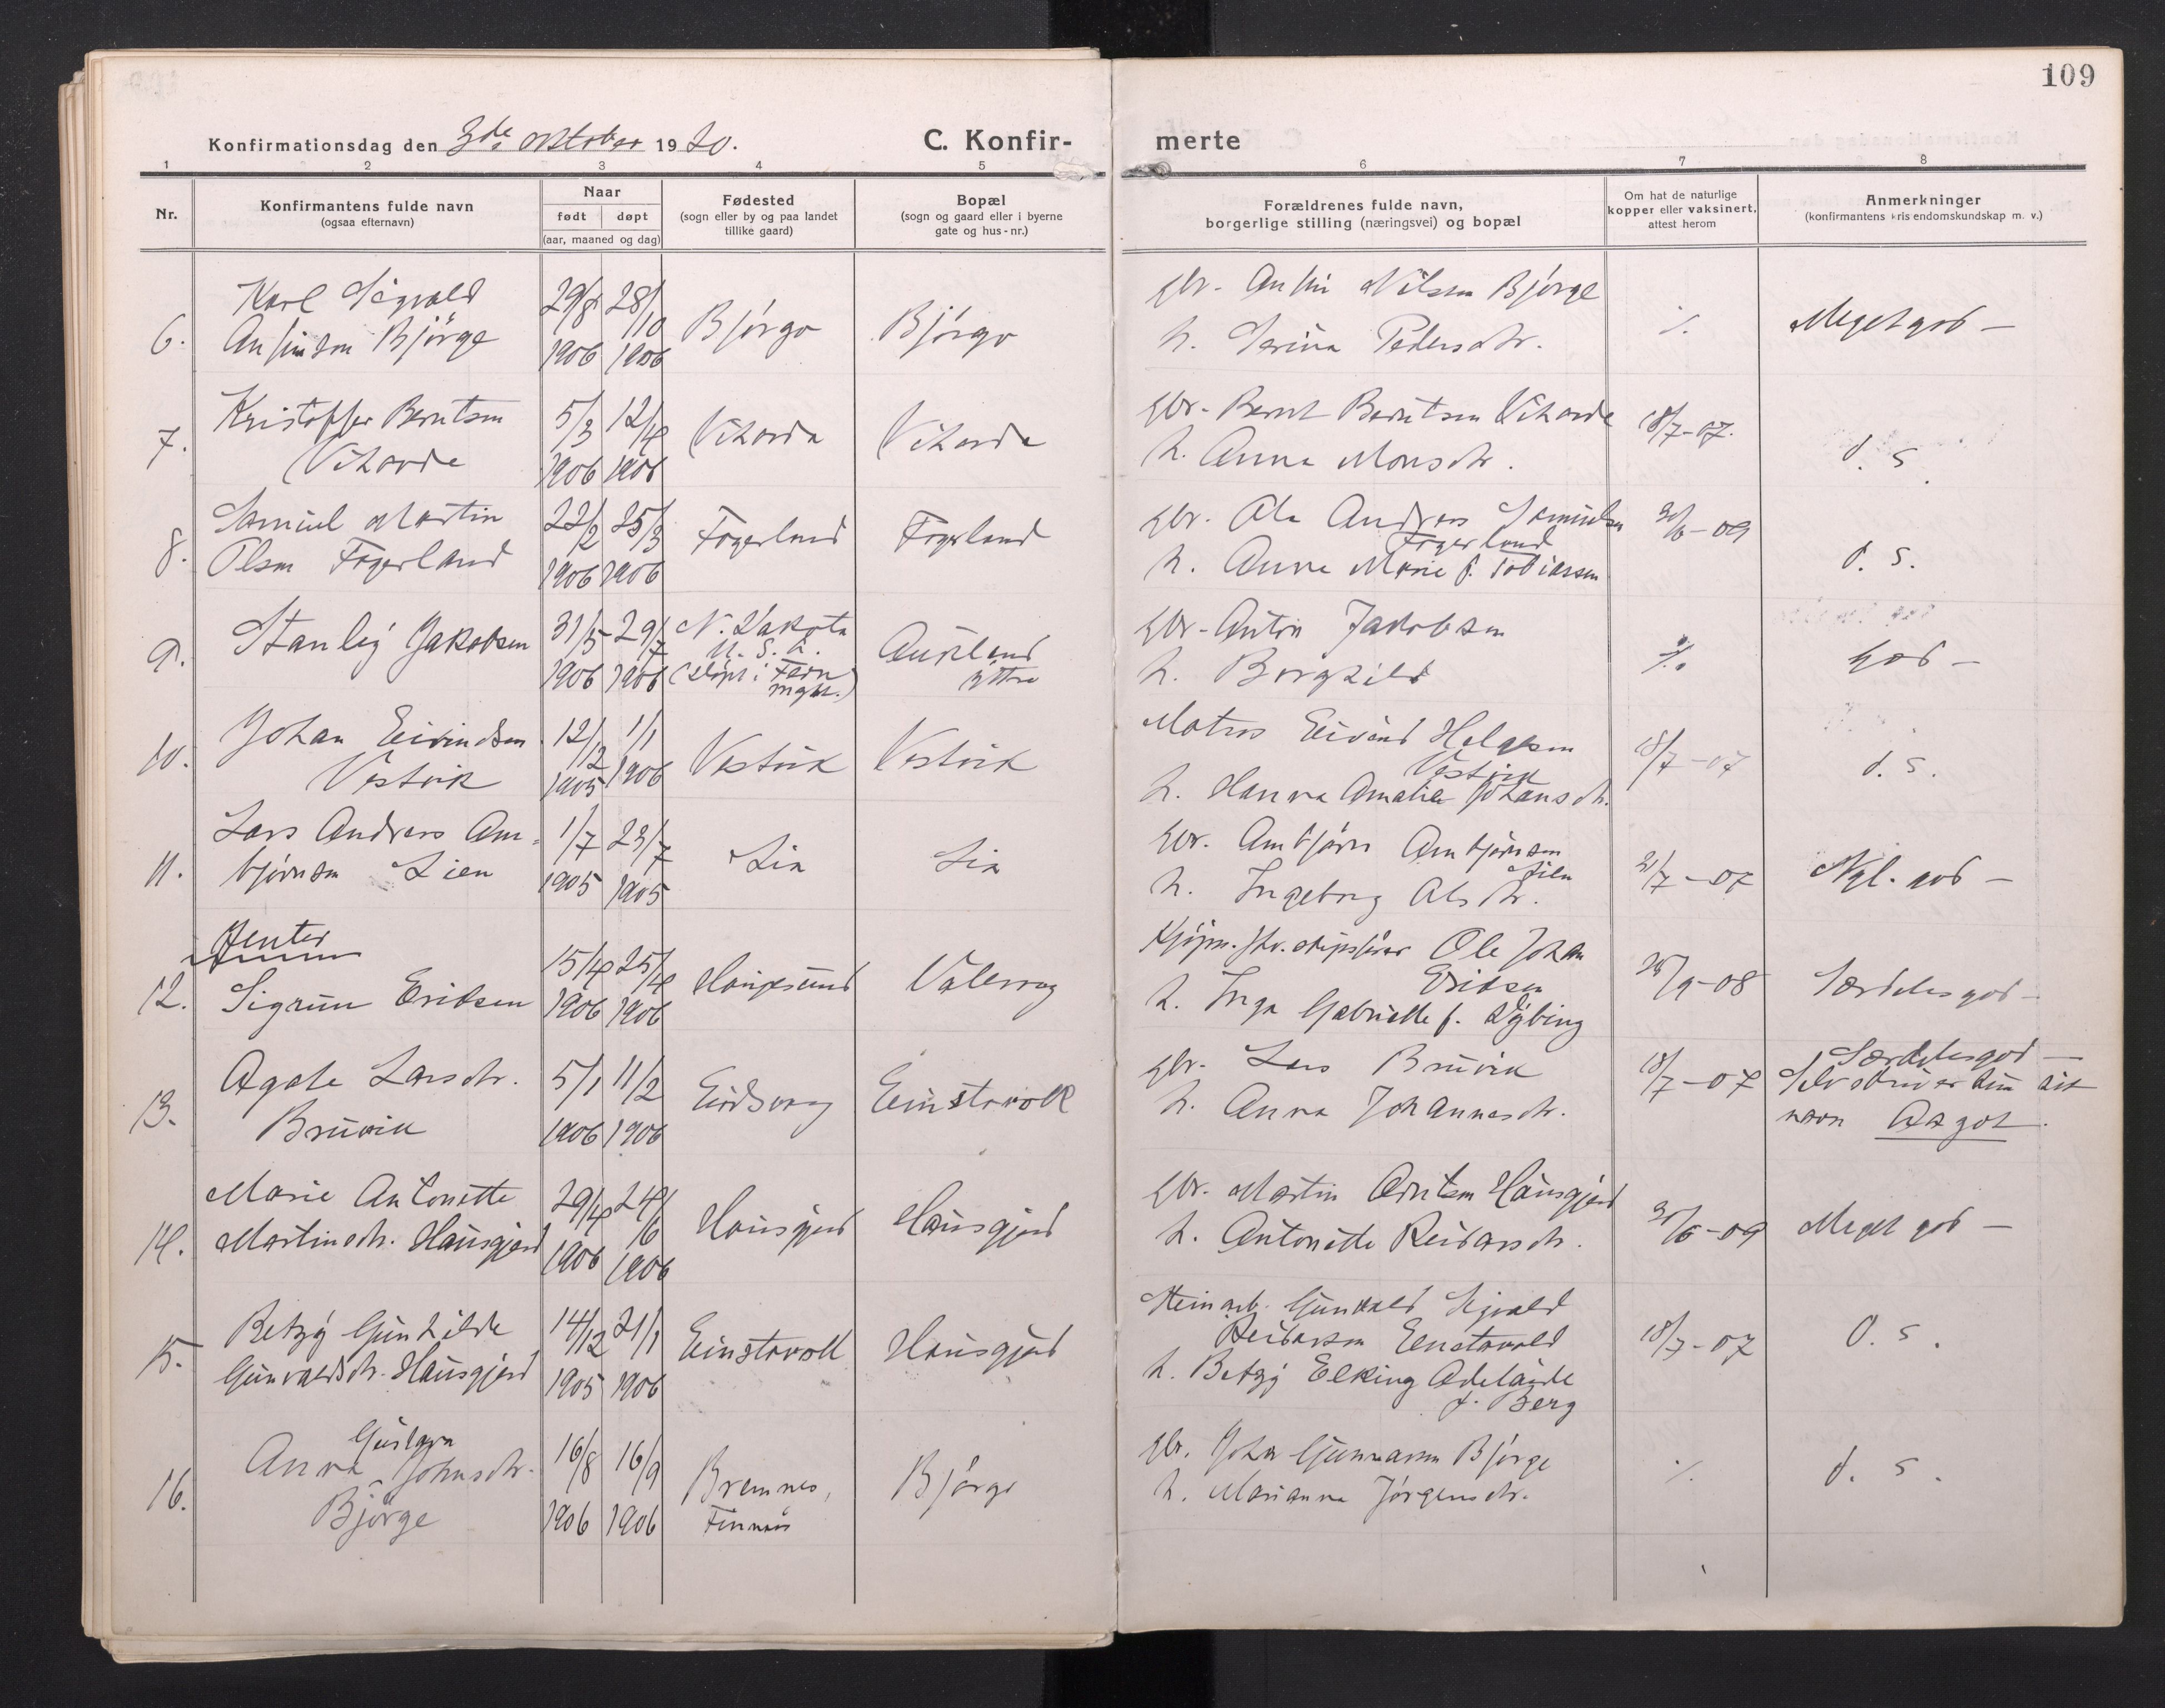 109
Konfirmationsdag den 3de oktober 1920.
C. Konfir-
merte
1 2 3 4 5 6 7 8
Nr.
Konfirmantens fulde navn
(ogsaa efternavn)
Naar
født døpt
(aar, maaned og dag)
Fødested
(sogn eller by og paa landet
tillike gaard)
Bopæl
(sogn og gaard eller i byerne
gate og hus-nr.)
Forældrenes fulde navn,
borgerlige stilling (næringsvei) og bopæl
Om hat de naturlige
kopper eller vaksinert,
attest herom
Anmerkninger
(konfirmantens kristendomskundskap m. v.)
6. Karl Sigvald
Anfinsen Bjørge
29/8 1906 28/10 1906
Bjørge Bjørge
Gbr. Anfin Nilsen Bjørge
h. Serina Pedersdtr.
%
Meget god —
7. Kristoffer Berntsen
Vihovde
5/3 1906 12/4 1906
Vihovde Vihovde
Gbr. Bernt Berntsen Vihovde
h. Anna Monsdtr.
18/7-07.
d. s.
8. Samuel Martin
Olsen Fagerland
22/2 1906 25/3 1906
Fagerland Fagerland
Gbr. Ole Andreas Samuelsen
Fagerland
h. Anna Marie f. Tobiassen
30/6-09
d. s.
9. Stanley Jakobsen
31/5 1906 29/7 1906
N. Dakota
U. S. A.
(døpt i
Aukland
yttre
Gbr. Anton Jakobsen
h. Borghild
%
God —
10. Johan Eivindsen
Vestvik
12/12 1905 1/1 1906
Vestvik Vestvik
Matros Eivind Helgesen
Vestvik
h. Hanna Amalie Johansdtr.
18/7-07
d. s.
11. Lars Andreas Am-
bjørnsen Lien
1/7 1905 23/7 1905
Lia Lia
Gbr. Ambjørn Ambjørnsen
Lien
h. Ingeborg Olsdtr.
Ngl. god —
Jenter
12. Sigrun Eriksen
15/4 1906 25/4 1906
Haugesund Valevaag
Ole Johan
Eriksen
h. Inga Gabrielle f. Dybing
28/9-08
Særdeles god —
13. Agate Larsdtr.
Bruvik
5/1 1906 11/2 1906
Eidsvaag Einstavoll
Gbr. Lars Bruvik
h. Anna Johannesdtr.
18/7-07
Særdeles god —
Selv skriver hun sit
navn Aagot.
14. Marie Antonette
Martinsdtr. Hausgjerd
29/4 1906 24/6 1906
Hausgjerd Hausgjerd
Gbr. Martin Arntsen Hausgjerd
h. Antonette Reidarsdtr.
30/6-09
Meget god —
15. Betzy Gunhilde
Gunvaldsdtr. Hausgjerd
14/12 1905 21/1 1906
Einstavoll Hausgjerd
Steinarb. Gunvald Sigvald
Reidarsen Einstavold
h. Betzy Elking Adelaide
f. Berg
18/7-07
d. s.
16. Anna Gustava Johnsdtr.
Bjørge
16/8 1906 16/9 1906
Bremnes,
Finnaas
Bjørge
Gbr. John Gunnarsen Bjørge
h. Marianna Jørgensdtr.
%
d. s.